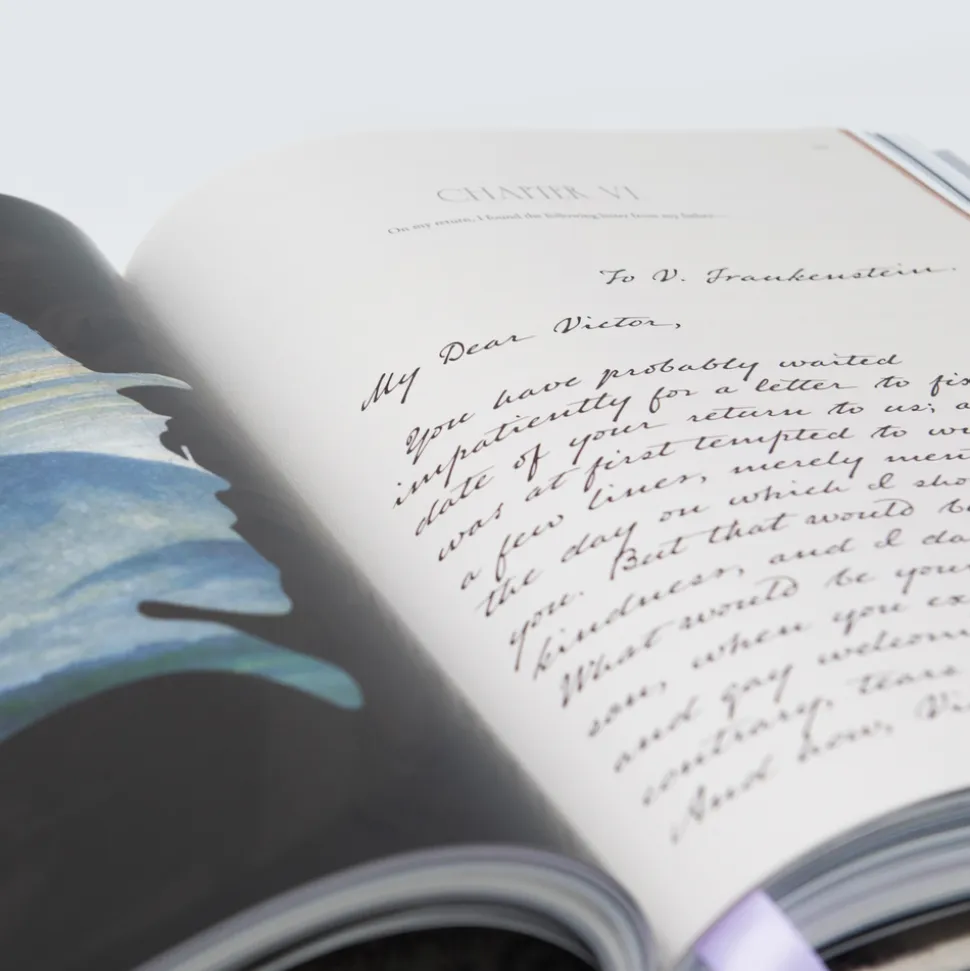 CHAPTER VI
On my return, I found the following letter from my father:—
To V. Frankenstein.
My Dear Victor,
You have probably waited
impatiently for a letter to fix
date of your return to us; a
was at first tempted to wr
a few lines, merely men
the day on which I sho
you. But that would be
kindness, and I da
What would be your
son, when you ex
and gay welcom
contrary, tears
And how, Vi